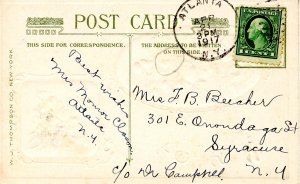 POST CARD
THIS SIDE FOR CORRESPONDENCE.
THE ADDRESS TO BE WRITTEN ON THIS SIDE.
ATLANTA
APR
2 PM
1917
N.Y.
W. J. THOMPSON CO. NEW YORK.
Best wishes
Mrs Monroe
Atlanta
N.Y.
Mrs F. B. Beecher
301 E. Onondaga St
Syracuse
c/o Dr Campbell N.Y